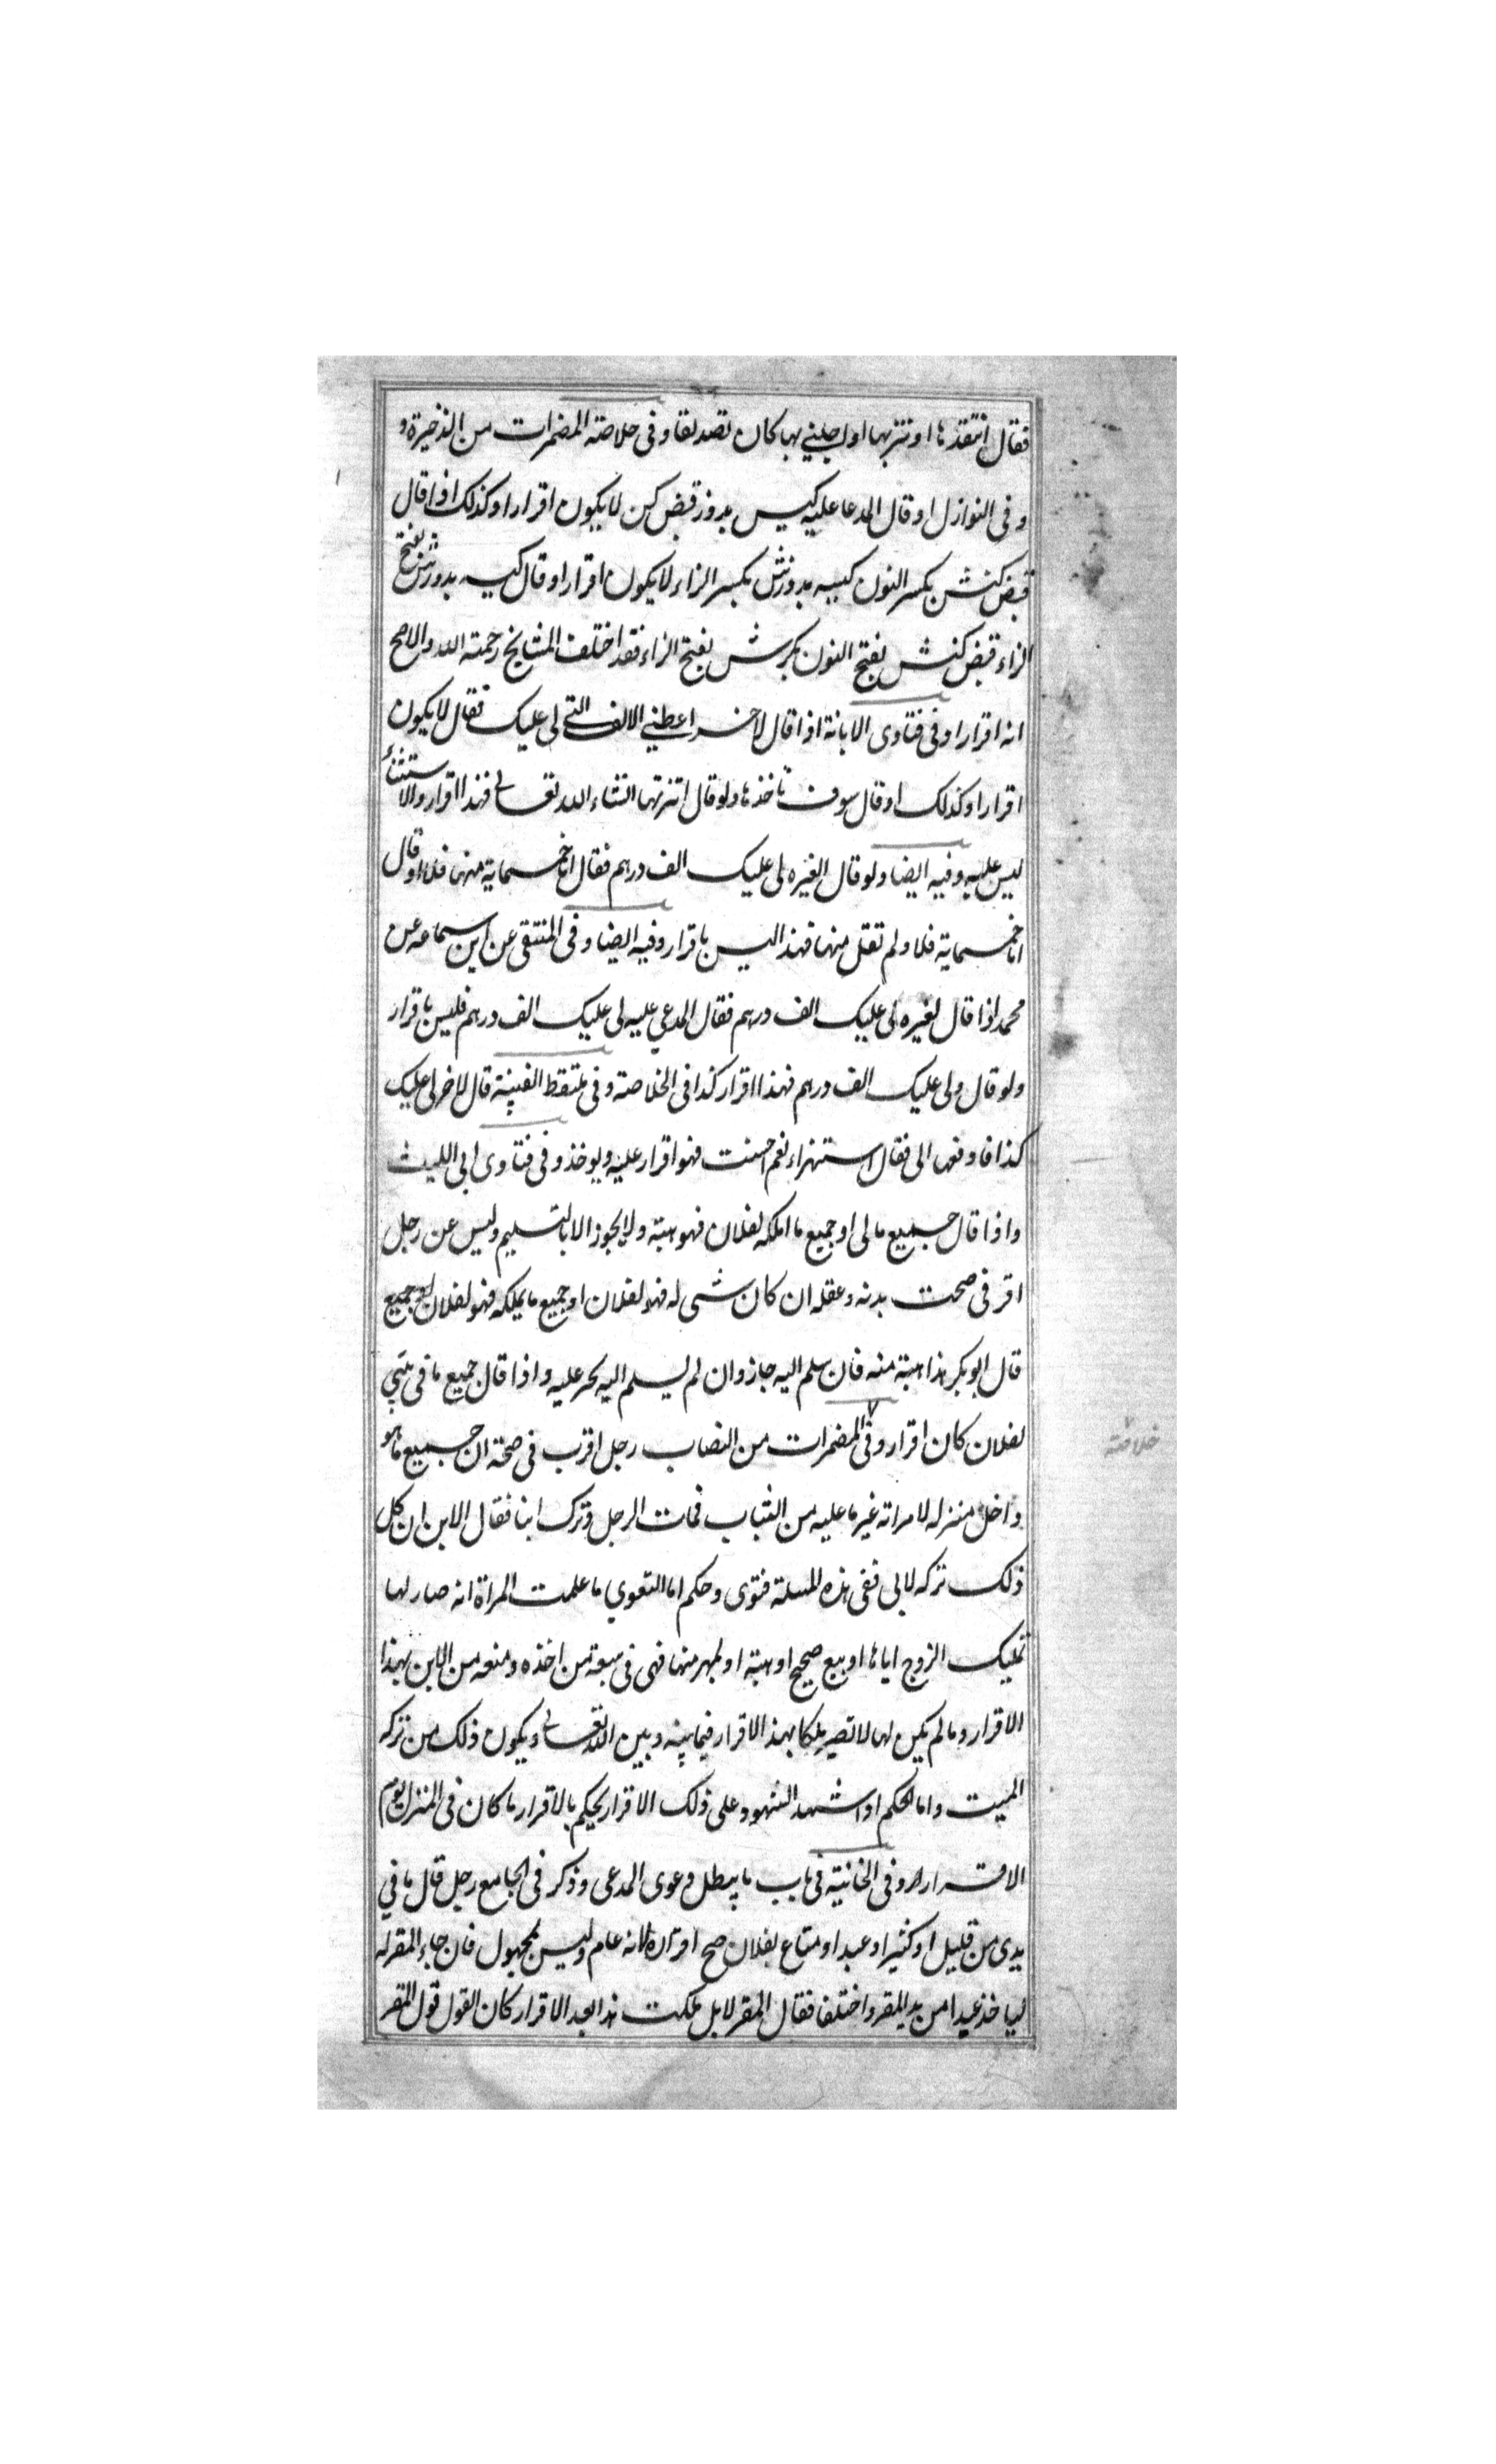 فقال انتقدها او تتزبها او اجلني بها كان تصديقا وفى خلاصة المضمرات من الذخيرة و
وفى النوازل او قال المدعا عليه كيس بدوز قبض كن لا يكون اقرارا وكذلك اذا قال
قبض كنش بكسر النون كيسه بدوزش بكسر الزاء لا يكون اقرارا وقال كيسه بدوزش بفتح
الزاء قبض كنش بفتح النون بكرش بفتح الزاء فقد اختلف المشايخ رحمة الله والاصح
انه اقرارا وفى فتاوى الابانة اذا قال لاخر اعطني الالف التي لى عليك فقال لا يكون
اقرارا وكذلك او قال سوف تاخذها ولو قال اتزنها انشاء الله تعالى فهذا اقرار والاستثناء
ليس عليه وفيه ايضا ولو قال لغيره لى عليك الف درهم فقال اما خمسماية منها فلا او قال
اما خمسماية فلا ولم تقل منها فهذا ليس باقرار وفيه ايضا وفى المنتقى عن ابن سماعه عن
محمد اذا قال لغيره لى عليك الف درهم فقال المدعي عليه لى عليك الف درهم فليس باقرار
ولو قال ولى عليك الف درهم فهذا اقرار كذا فى الخلاصة وفى ملتقط القنية قال لاخر لى عليك
كذا فادفعها الى فقال استهزاء نعم احسنت فهو اقرار عليه ويوخذ وفى فتاوى ابى الليث
واذا قال جميع مالى او جميع ما املكه لفلان فهو هبة ولا يجوز الا بالتسليم وليس عن رجل
اقر فى صحت بدنه وعقله ان كان شى له فهو لفلان او جميع ما يملكه فهو لفلان او جميع
قال ابو بكر هذا هبة منه فان سلم اليه جاز وان لم يسلم اليه يحر عليه واذا قال جميع ما فى بيتي
لفلان كان اقرار وفى المضمرات من النصاب رجل اقرب فى صحة ان جميع ما هو
داخل منزله لامراته غير ما عليه من الثياب فمات الرجل وترك ابنا فقال الابن ان كل
ذلك تركه لابى ففى هذه المسلة فتوى وحكم اما التعوي ما علمت المراة انه صار لها
تمليك الزوج اياها او بيع صحيح او هبة او لمهر منها فهى فى سعة من اخذه ومنعه من الابن بهذا
الاقرار وما لم يكن لها لا تصير ملكا بهذ الاقرار فيما بينه وبين الله تعالى ويكون ذلك من تركه
الميت واما الحكم اذا شهد الشهود على ذلك الاقرار يحكم بالاقرار ما كان فى المنزل يوم
الاقرار وفى الخانية فى باب ما يبطل دعوى المدعى وذكر فى الجامع رجل قال ما في
يدى من قليل او كثير او عبد او متاع لفلان صح اقراره لانه عام وليس بمجهول فان جاء المقر له
لياخذ عبدا من يد المقر واختلفا فقال المقر لا بل ملكت هذا بعد الاقرار كان القول قول المقر
خلاصة